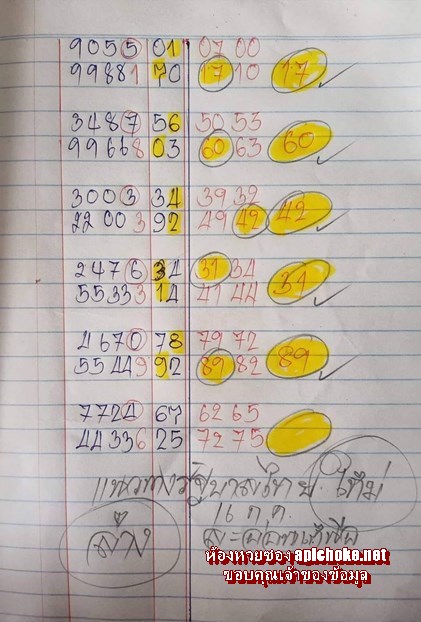 9055 01 07 00
99881 70 17 10 17
3487 56 50 53
99668 03 60 63 60
3003 34 39 32
22003 92 49 42 42
2476 34 31 34
55333 14 41 44 31
4670 78 79 72
55449 92 89 82 89
7724 67 62 65
44336 25 72 75
แนวทางรัฐบาลไทย
16 ก.ค.
ล่าง
ห้องหวยซอง apichoke.net
ขอบคุณเจ้าของข้อมูล